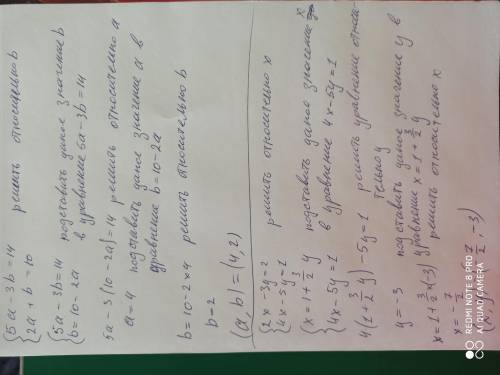 {5a - 3b = 14 решить относительно b
{2a + b = 10
{5a - 3b = 14 подставить даное значение b
{b = 10 - 2a в уравнение 5a - 3b = 14
5a - 3(10 - 2a) = 14 решить относительно a
a = 4 подставить даное значение a в
уравнение b = 10 - 2a
b = 10 - 2×4 решить относительно b
b = 2
(a, b) = (4, 2)
{2x - 3y = 2 решить относительно x
{4x - 5y = 1
{x = 1 + 3/2 y подставить даное значение x
{4x - 5y = 1 в уравнение 4x - 5y = 1
4(1 + 3/2 y) - 5y = 1 решить уравнение относи-
тельно y
y = -3 подставить даное значение y в
уравнение x = 1 + 3/2 y
x = 1 + 3/2 × (-3) решить относительно x
x = - 7/2
7/2, -3)
REDMI NOTE 8 PRO
AI QUAD CAMERA